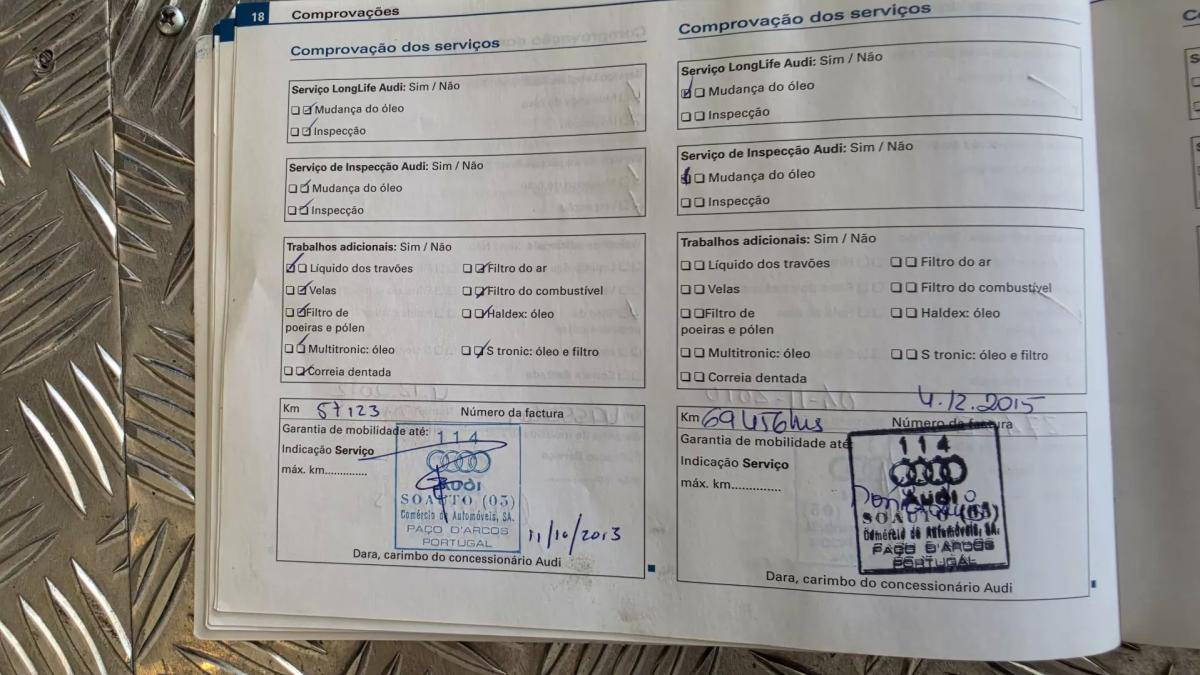 18 Comprovações
Comprovação dos serviços
Serviço LongLife Audi: Sim / Não
Mudança do óleo
Inspecção
Serviço de Inspecção Audi: Sim / Não
Mudança do óleo
Inspecção
Trabalhos adicionais: Sim / Não
Líquido dos travões Filtro do ar
Velas Filtro do combustível
Filtro de Haldex: óleo
poeiras e pólen
Multitronic: óleo S tronic: óleo e filtro
Correia dentada
Km 57123 Número da factura
Garantia de mobilidade até:
Indicação Serviço
máx. km..............
114
AUDI
SOAUTO (03)
Comércio de Automóveis, SA.
PAÇO D'ARCOS
PORTUGAL
11/10/2013
Dara, carimbo do concessionário Audi
Comprovação dos serviços
Serviço LongLife Audi: Sim / Não
Mudança do óleo
Inspecção
Serviço de Inspecção Audi: Sim / Não
Mudança do óleo
Inspecção
Trabalhos adicionais: Sim / Não
Líquido dos travões Filtro do ar
Velas Filtro do combustível
Filtro de Haldex: óleo
poeiras e pólen
Multitronic: óleo S tronic: óleo e filtro
Correia dentada
4.12.2015
Km 69456 kms Número da factura
Garantia de mobilidade até:
Indicação Serviço
máx. km..............
114
AUDI
SOAUTO (03)
Comércio de Automóveis, SA.
PAÇO D'ARCOS
PORTUGAL
Dara, carimbo do concessionário Audi